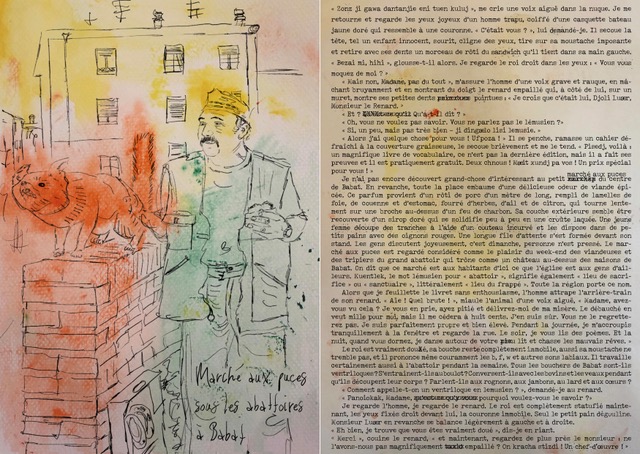 Marché aux puces
sous les abattoires
à Babat
« Sonz ji gawa dantanjie eni tuen kuluj », me crie une voix aiguë dans la nuque. Je me
retourne et regarde les yeux joyeux d'un homme trapu, coiffé d'une casquette bateau
jaune doré qui ressemble à une couronne. « C'était vous ? », lui demandé-je. Il secoue la
tête, tel un enfant innocent, sourit, cligne des yeux, tire sur sa moustache imposante
et retire avec ses dents un morceau de rôti du sandwich qu'il tient dans sa main gauche.
« Bezai mi, hihi », glousse-t-il alors. Je regarde le roi droit dans les yeux : « Vous vous
moquez de moi ? »
« Mais non, Madame, pas du tout », m'assure l'homme d'une voix grave et rauque, en mâ-
chant bruyamment et en montrant du doigt le renard empaillé qui, à côté de lui, sur un
muret, montre ses petites dents pointues : « Je crois que c'était lui, Djoli Luxr,
Monsieur le Renard. »
« Et ? Qu'a-t-il dit ? »
« Oh, vous ne voulez pas savoir. Vous ne parlez pas le lemusien ? »
« Si, un peu, mais pas très bien – ji dingwio lisi lemusie. »
« Alors j'ai quelque chose pour vous ! Ufpoza ! » Il se penche, ramasse un cahier dé-
fraîchi à la couverture graisseuse, le secoue brièvement et me le tend. « Pisedj, voilà :
un magnifique livre de vocabulaire, ce n'est pas la dernière édition, mais il a fait ses
preuves et il est pratiquement gratuit. Deux chnous ! Kuit xundj pa vos ! Un prix spécial
pour vous ! »
Je n'ai pas encore découvert grand-chose d'intéressant au petit marché aux puces du centre
de Babat. En revanche, toute la place embaume d'une délicieuse odeur de viande épi-
cée. Ce parfum provient d'un rôti de porc d'un mètre de long, rempli de lamelles de
foie, de couenne et d'estomac, fourré d'herbes, d'ail et de citron, qui tourne lente-
ment sur une broche au-dessus d'un feu de charbon. Sa couche extérieure semble être
recouverte d'un sirop doré qui se solidifie peu à peu en une croûte laquée. Une jeune
femme découpe des tranches à l'aide d'un couteau incurvé et les dispose dans de pe-
tits pains avec des oignons rouges. Une longue file d'attente s'est formée devant son
stand. Les gens discutent joyeusement, c'est dimanche, personne n'est pressé. Le mar-
ché aux puces est regardé considéré comme le plaisir du week-end des viandeuses et
des tripiers du grand abattoir qui trône comme un château au-dessus des maisons de
Babat. On dit que ce marché est aux habitants d'ici ce que l'église est aux gens d'ail-
leurs. Kuentlek, le mot lémusien pour « abattoir », signifie également « lieu de sacri-
fice » ou « sanctuaire », littéralement « lieu du frappé ». Toute la région porte ce nom.
Alors que je feuillette le livret sans enthousiasme, l'homme attrape l'arrière-train
de son renard. « Aïe ! Quel brute ! », miaule l'animal d'une voix aiguë, « Madame, avez-
vous vu cela ? Je vous en prie, ayez pitié et délivrez-moi de ma misère. Le débauché en
veut mille pour moi, mais il me cédera à huit cents. J'en suis sûr. Vous ne le regrette-
rez pas. Je suis parfaitement propre et bien élevé. Pendant la journée, je m'accroupis
tranquillement à la fenêtre et regarde la rue. Le soir, je vous lis des poèmes. Et la
nuit, quand vous dormez, je danse autour de votre lit et chasse les mauvais rêves. »
Le roi est vraiment doué, sa bouche reste complètement immobile, aussi sa moustache ne
tremble pas, et il prononce même couramment les b, f, w et autres sons labiaux. Il travaille
certainement aussi à l'abattoir pendant la semaine. Tous les bouchers de Babat sont-ils
ventriloques ? S'entraînent-ils au boulot ? Convertent-ils avec les bovins et les veaux pendant
qu'ils découpent leur corps ? Parlent-ils aux rognons, aux jambons, au lard et aux cœurs ?
« Comment appelle-t-on un ventriloque en lemusien ? », demandé-je au renard.
« Panolokak, Madame, pourquoi voulez-vous le savoir ? »
Je regarde l'homme, je regarde le renard. Le roi est complètement statufié mainte-
nant, les yeux fixés droit devant lui, la couronne immobile. Seul le petit pain dégouline.
Monsieur Luxr en revanche se balance légèrement à gauche et à droite.
« Eh bien, je trouve que vous êtes vraiment doué », dis-je en riant.
« Merci », couine le renard, « et maintenant, regardez de plus près le monsieur : ne
l'avons-nous pas magnifiquement empaillé ? On kracha stindi ! Un chef-d'œuvre ! »